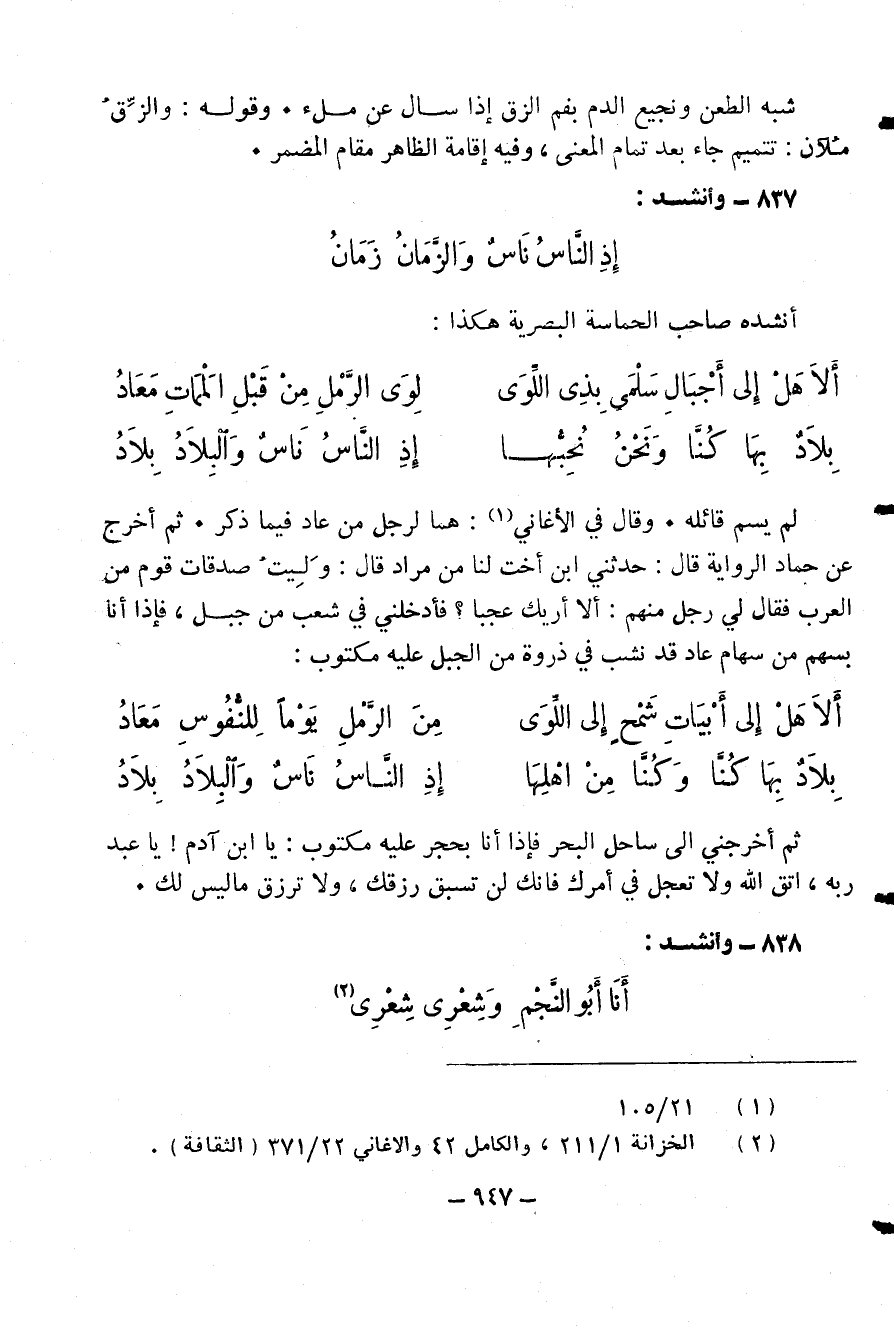 شبه الطعن ونجيع الدم بفم الزق إذا سال عن ملء . وقوله : والزِّقُ
ملآن : تتميم جاء بعد تمام المعنى ، وفيه إقامة الظاهر مقام المضمر .
٨٣٧ – وأنشد :
إِذِ النَّاسُ نَاسٌ وَالزَّمَانُ زَمَانُ
أنشده صاحب الحماسة البصرية هكذا :
أَلاَ هَلْ إِلى أَجْبَالِ سَلْمَى بِذِى اللِّوَى لِوَى الرَّمْلِ مِنْ قَبْلِ الْمَمَاتِ مَعَادُ
بِلاَدٌ بِهَا كُنَّا وَنَحْنُ نُحِبُّهَا إِذِ النَّاسُ نَاسٌ وَالْبِلاَدُ بِلاَدُ
لم يسم قائله . وقال في الأغاني(١) : هما لرجل من عاد فيما ذكر . ثم أخرج
عن حماد الرواية قال : حدثني ابن أخت لنا من مراد قال : وَلِيتُ صدقات قوم من
العرب فقال لي رجل منهم : ألا أريك عجبا ؟ فأدخلني في شعب من جبل ، فإذا أنا
بسهم من سهام عاد قد نشب في ذروة من الجبل عليه مكتوب :
أَلاَ هَلْ إِلى أَبْيَاتِ شَمْحٍ إِلى اللِّوَى مِنَ الرَّمْلِ يَوْماً لِلنُّفُوسِ مَعَادُ
بِلاَدٌ بِهَا كُنَّا وَكُنَّا مِنْ اهْلِهَا إِذِ النَّاسُ نَاسٌ وَالْبِلاَدُ بِلاَدُ
ثم أخرجني الى ساحل البحر فإذا أنا بحجر عليه مكتوب : يا ابن آدم ! يا عبد
ربه ، اتق الله ولا تعجل في أمرك فانك لن تسبق رزقك ، ولا ترزق ماليس لك .
٨٣٨ – وأنشد :
أَنَا أَبُو النَّجْمِ وَشِعْرِى شِعْرِى(٢)
(١) ١٠٥/٢١
(٢) الخزانة ٢١١/١ ، والكامل ٤٢ والاغاني ٣٧١/٢٢ ( الثقافة ) .
– ٩٤٧ –